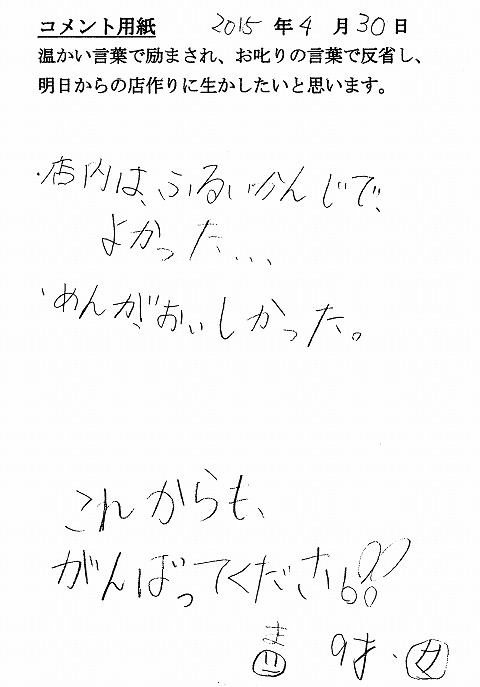 コメント用紙 2015 年 4 月 30 日
温かい言葉で励まされ、お叱りの言葉で反省し、
明日からの店作りに生かしたいと思います。
・店内は、ふるいかんじで、
よかった...
・めんが、おいしかった。
これからも、
がんばってください!!
9才・女